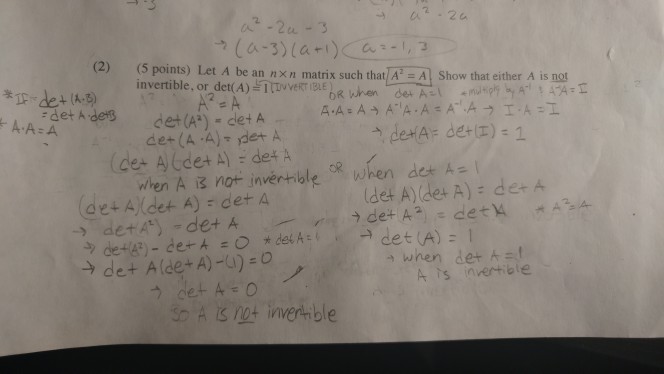 a² - 2a - 3
→ a² - 2a
→ (a-3)(a+1) a = -1, 3
(2) (5 points) Let A be an n×n matrix such that A² = A. Show that either A is not
invertible, or det(A) = 1 (INVERTIBLE)
* IF = det(A·B)
= det A · det B
* A·A = A
A² = A
det(A²) = det A
det(A·A) = det A
(det A)(det A) = det A
when A is not invertible
(det A)(det A) = det A
→ det(A²) = det A
→ det(A²) - det A = 0 * det A =
→ det A(det A) - (1) = 0
→ det A = 0
so A is not invertible
OR when det A = 1 * multiply by A⁻¹ A⁻¹A = I
A·A = A → A⁻¹A·A = A⁻¹·A → I·A = I
→ det(A = det(I) = 1
OR when det A = 1
(det A)(det A) = det A
→ det(A²) = det A * A² = A
→ det(A) = 1
→ when det A = 1
A is invertible